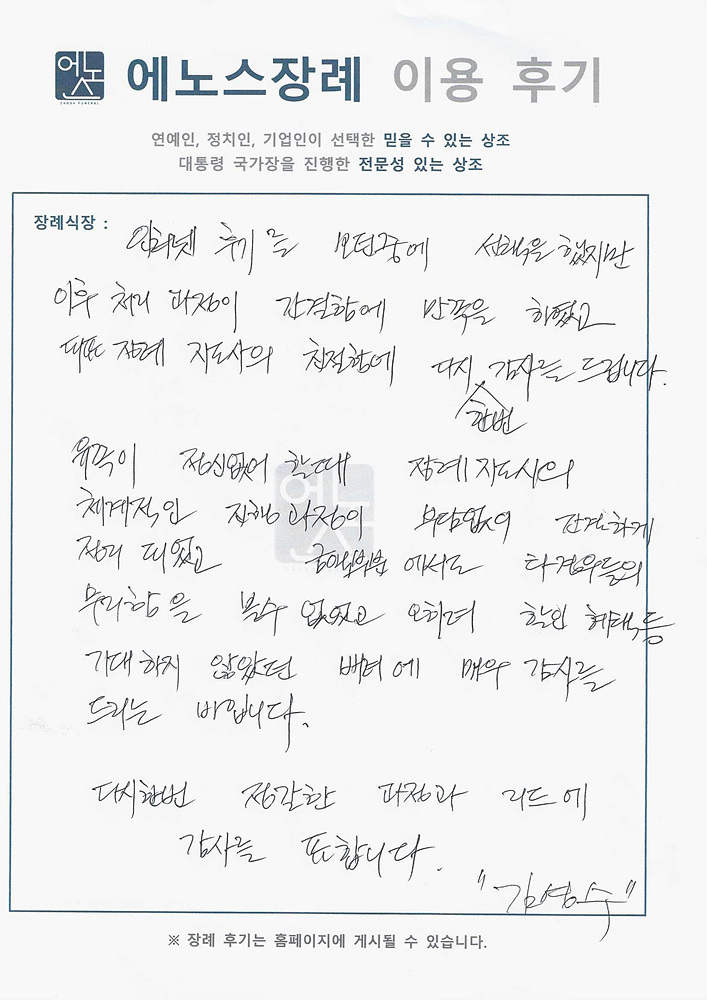 에노스장례 이용 후기
ENOSS FUNERAL
연예인, 정치인, 기업인이 선택한 믿을 수 있는 상조
대통령 국가장을 진행한 전문성 있는 상조
장례식장 :
인터넷 후기를 보던중에 선택을 했지만
이후 처리 과정이 간결함에 만족을 하였고
또 장례 지도사의 친절함에 다시 한번 감사를 드립니다.
유족이 정신없어 할때 장례지도사의
체계적인 진행 과정이 부담없이 간단하게
정리 되었고 에서도 타 들의
무리함을 볼수 없었고 오히려 할인 혜택등
기대하지 않았던 배려에 매우 감사를
드리는 바입니다.
다시한번 정갈한 과정과 리드에
감사를 표합니다.
"김영수"
※ 장례 후기는 홈페이지에 게시될 수 있습니다.